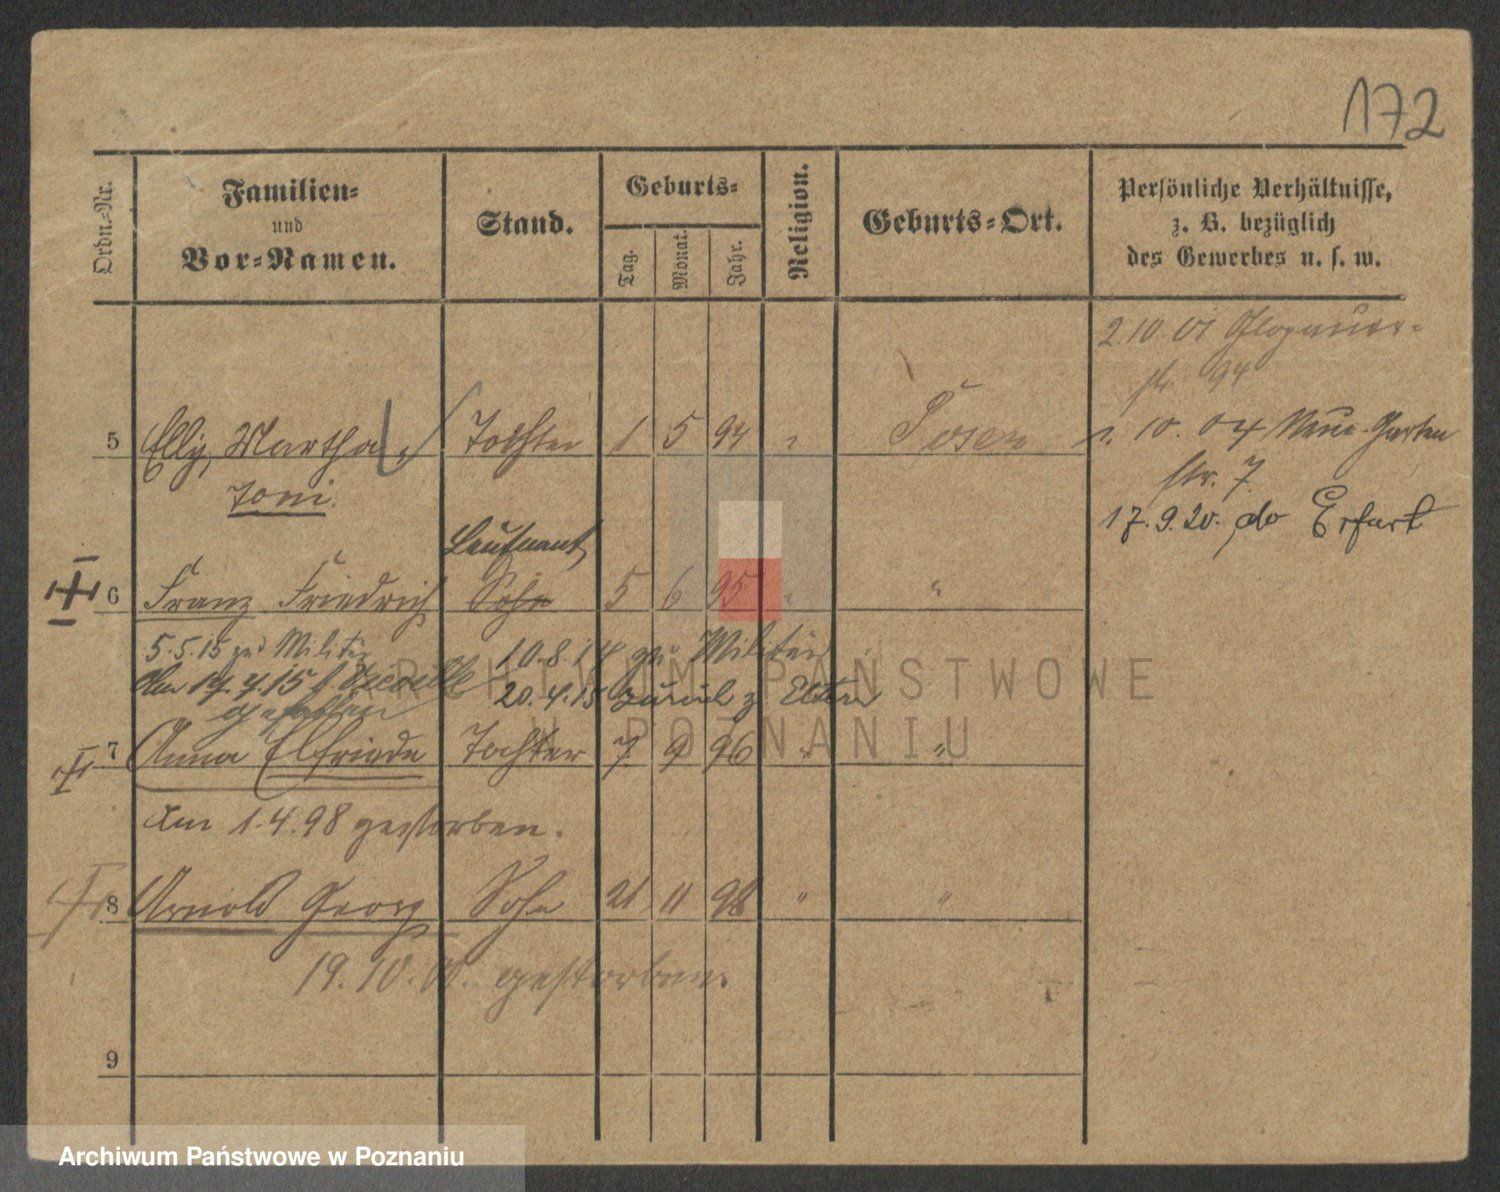 172
Ordn.-Nr.
Familien-
und
Vor-Namen.
Stand.
Geburts-
Tag.
Monat.
Jahr.
Religion.
Geburts-Ort.
Persönliche Verhältnisse,
z. B. bezüglich
des Gewerbes u. s. w.
2.10.01 Glogauer-
str. 94
5 Elly, Martha, Tochter 1 5 94 " Posen
Toni.
1. 10. 04 Neue Garten
str. 7
17. 9. 20. do Erfurt
Leutnant
6 Franz Friedrich Sohn 5 6 95 " "
5.5.15 zum Militär
10.8.14 zu Militär
Am 17.4.15
gefallen
20.4.15 zurück z. Eltern
7 Anna Elfriede Tochter 7. 9 96 " "
Am 1.4.98 gestorben.
8 Arnold Georg Sohn 21 11 98 " "
19.10.00. gestorben.
9
ARCHIWUM PAŃSTWOWE
W POZNANIU
Archiwum Państwowe w Poznaniu